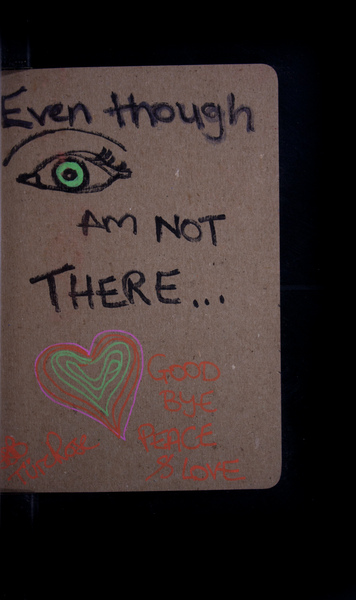 Even though
AM NOT
THERE...
GOOD
BYE
PEACE
& LOVE